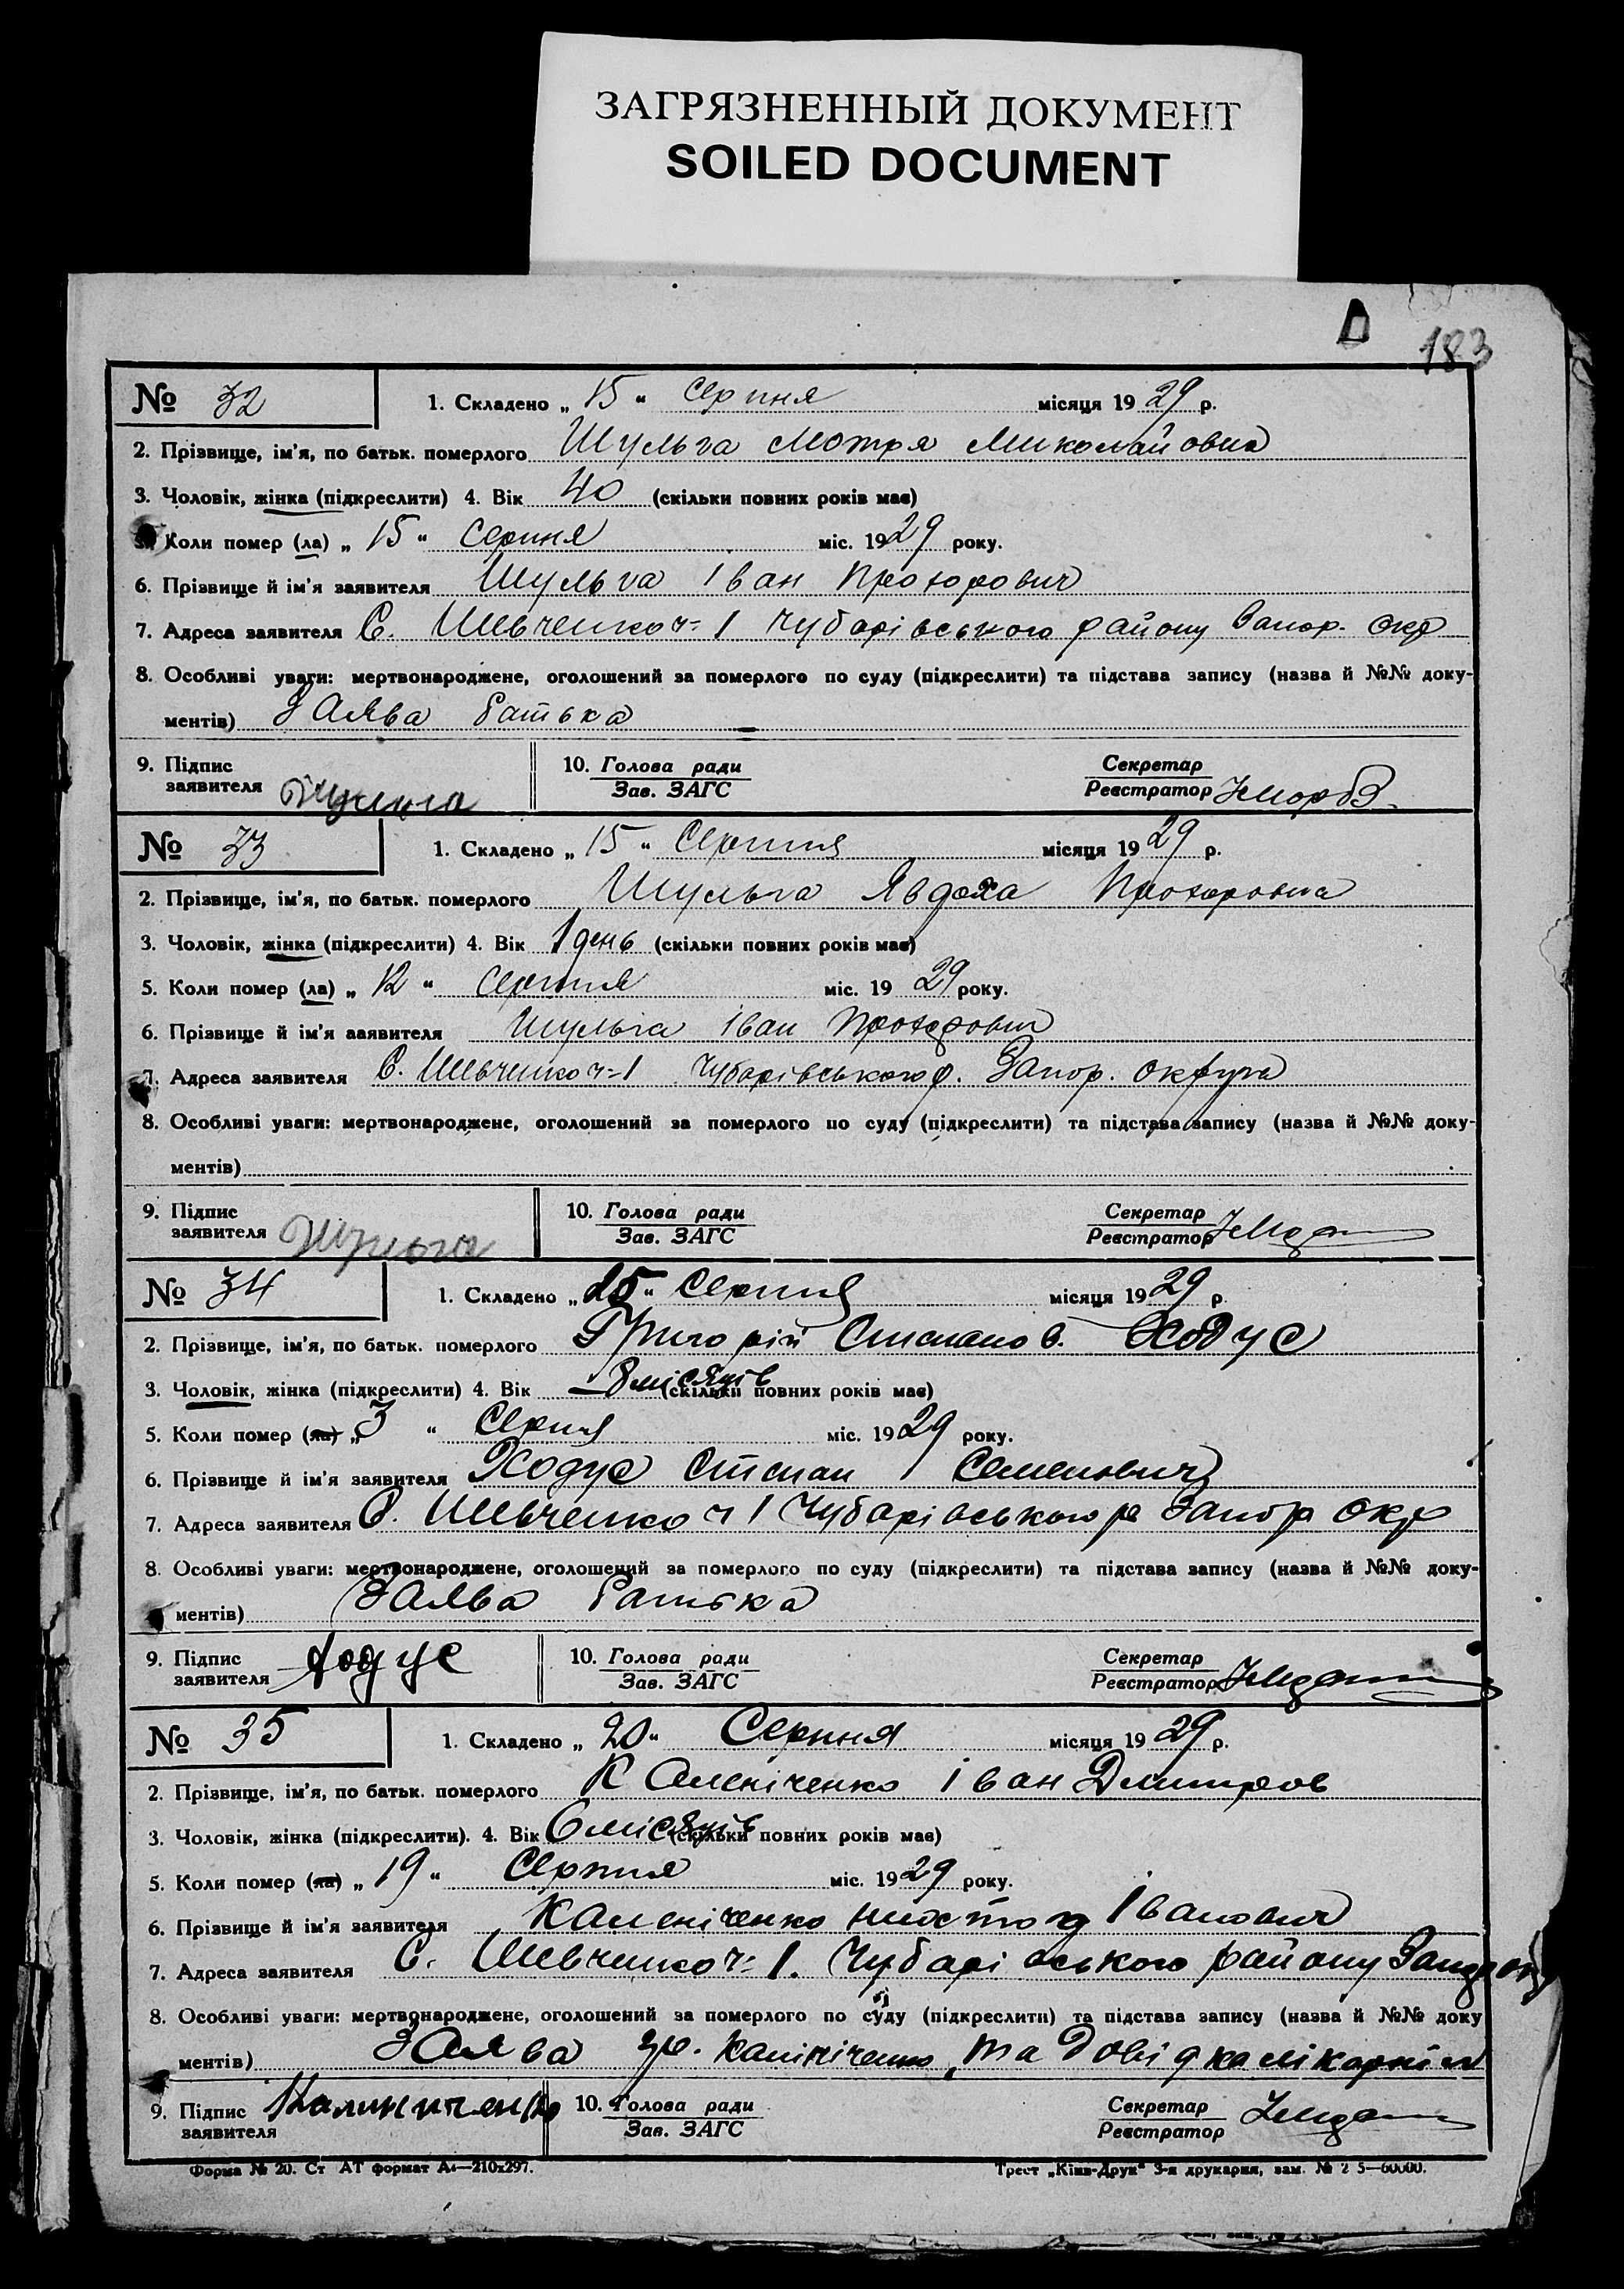 ЗАГРЯЗНЕННЫЙ ДОКУМЕНТ
SOILED DOCUMENT
183
№ 32 1. Складено „ 15 “ Серпня місяця 1929 р.
2. Прізвище, ім'я, по батьк. померлого Шульга Мотря Миколайовна
3. Чоловік, жінка (підкреслити) 4. Вік 40 (скільки повних років має)
5. Коли помер (ла) „ 15 “ Серпня міс. 1929 року.
6. Прізвище й ім'я заявителя Шульга Іван Прохорович
7. Адреса заявителя С. Шевченко ч=1 Чубарівського району Запор. окр
8. Особливі уваги: мертвонароджене, оголошений за померлого по суду (підкреслити) та підстава запису (назва й №№ доку-
ментів) Заява батька
9. Підпис 10. Голова ради Секретар
заявителя Шульга Зав. ЗАГС Реєстратор
№ 33 1. Складено „ 15 “ Серпня місяця 1929 р.
2. Прізвище, ім'я, по батьк. померлого Шульга Явдоха Прохоровна
3. Чоловік, жінка (підкреслити) 4. Вік 1 день (скільки повних років має)
5. Коли помер (ла) „ 12 “ Серпня міс. 1929 року.
6. Прізвище й ім'я заявителя Шульга Іван Прохорович
7. Адреса заявителя С. Шевченко ч=1 Чубарівського р. Запор. округи
8. Особливі уваги: мертвонароджене, оголошений за померлого по суду (підкреслити) та підстава запису (назва й №№ доку-
ментів)
9. Підпис 10. Голова ради Секретар
заявителя Шульга Зав. ЗАГС Реєстратор
№ 34 1. Складено „ 15 “ Серпня місяця 1929 р.
2. Прізвище, ім'я, по батьк. померлого Григорій Степанов. Ходус
3. Чоловік, жінка (підкреслити) 4. Вік 8 місяців (скільки повних років має)
5. Коли помер (ла) „ 3 “ Серпня міс. 1929 року.
6. Прізвище й ім'я заявителя Ходус Степан Семенович
7. Адреса заявителя С. Шевченко ч 1 Чубарівського р Запор окр
8. Особливі уваги: мертвонароджене, оголошений за померлого по суду (підкреслити) та підстава запису (назва й №№ доку-
ментів) Заява батька
9. Підпис 10. Голова ради Секретар
заявителя Ходус Зав. ЗАГС Реєстратор
№ 35 1. Складено „ 20 “ Серпня місяця 1929 р.
2. Прізвище, ім'я, по батьк. померлого Каленіченко Іван Дмитров
3. Чоловік, жінка (підкреслити). 4. Вік 6 місяців (скільки повних років має)
5. Коли помер (ла) „ 19 “ Серпня міс. 1929 року.
6. Прізвище й ім'я заявителя Каленіченко Іванович
7. Адреса заявителя С. Шевченко ч=1. Чубарівського району Запор окр
8. Особливі уваги: мертвонароджене, оголошений за померлого по суду (підкреслити) та підстава запису (назва й №№ доку
ментів) Заява гр. Калініченко, та Довідка лікарні
9. Підпис Калиниченко 10. Голова ради Секретар
заявителя Зав. ЗАГС Реєстратор
Форма № 20. Ст АТ формат А4—210х297. Трест „Київ-Друк“ 3-я друкарня, зам. № 2 5—60000.